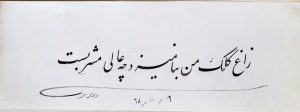 زاغ کلک من بنامیزد چه عالی مشربست
۹ / ۱۰ / ۶۸